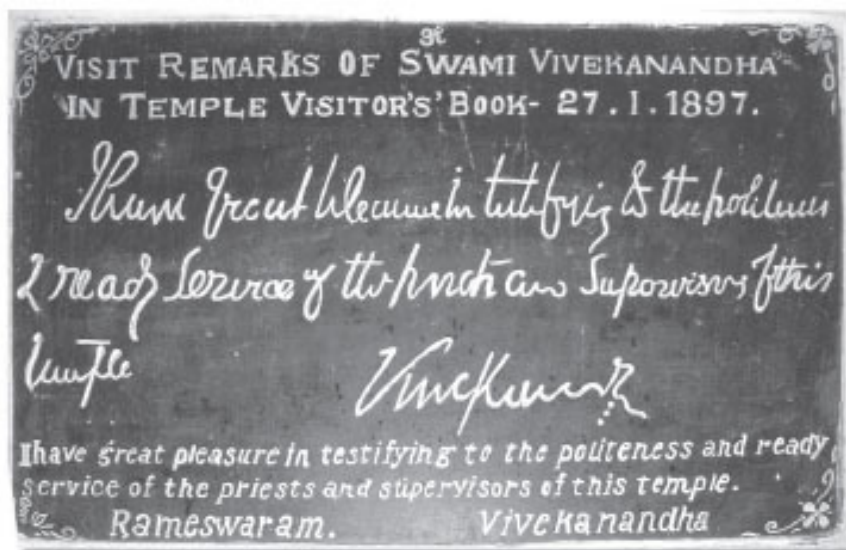 VISIT REMARKS OF SWAMI VIVEKANANDHA
IN TEMPLE VISITOR'S' BOOK- 27.1.1897.
I have great pleasure in testifying to the politeness
& ready service of the priests and supervisors of this
temple
Vivekananda
I have great pleasure in testifying to the politeness and ready
service of the priests and supervisors of this temple.
Rameswaram. Vivekanandha